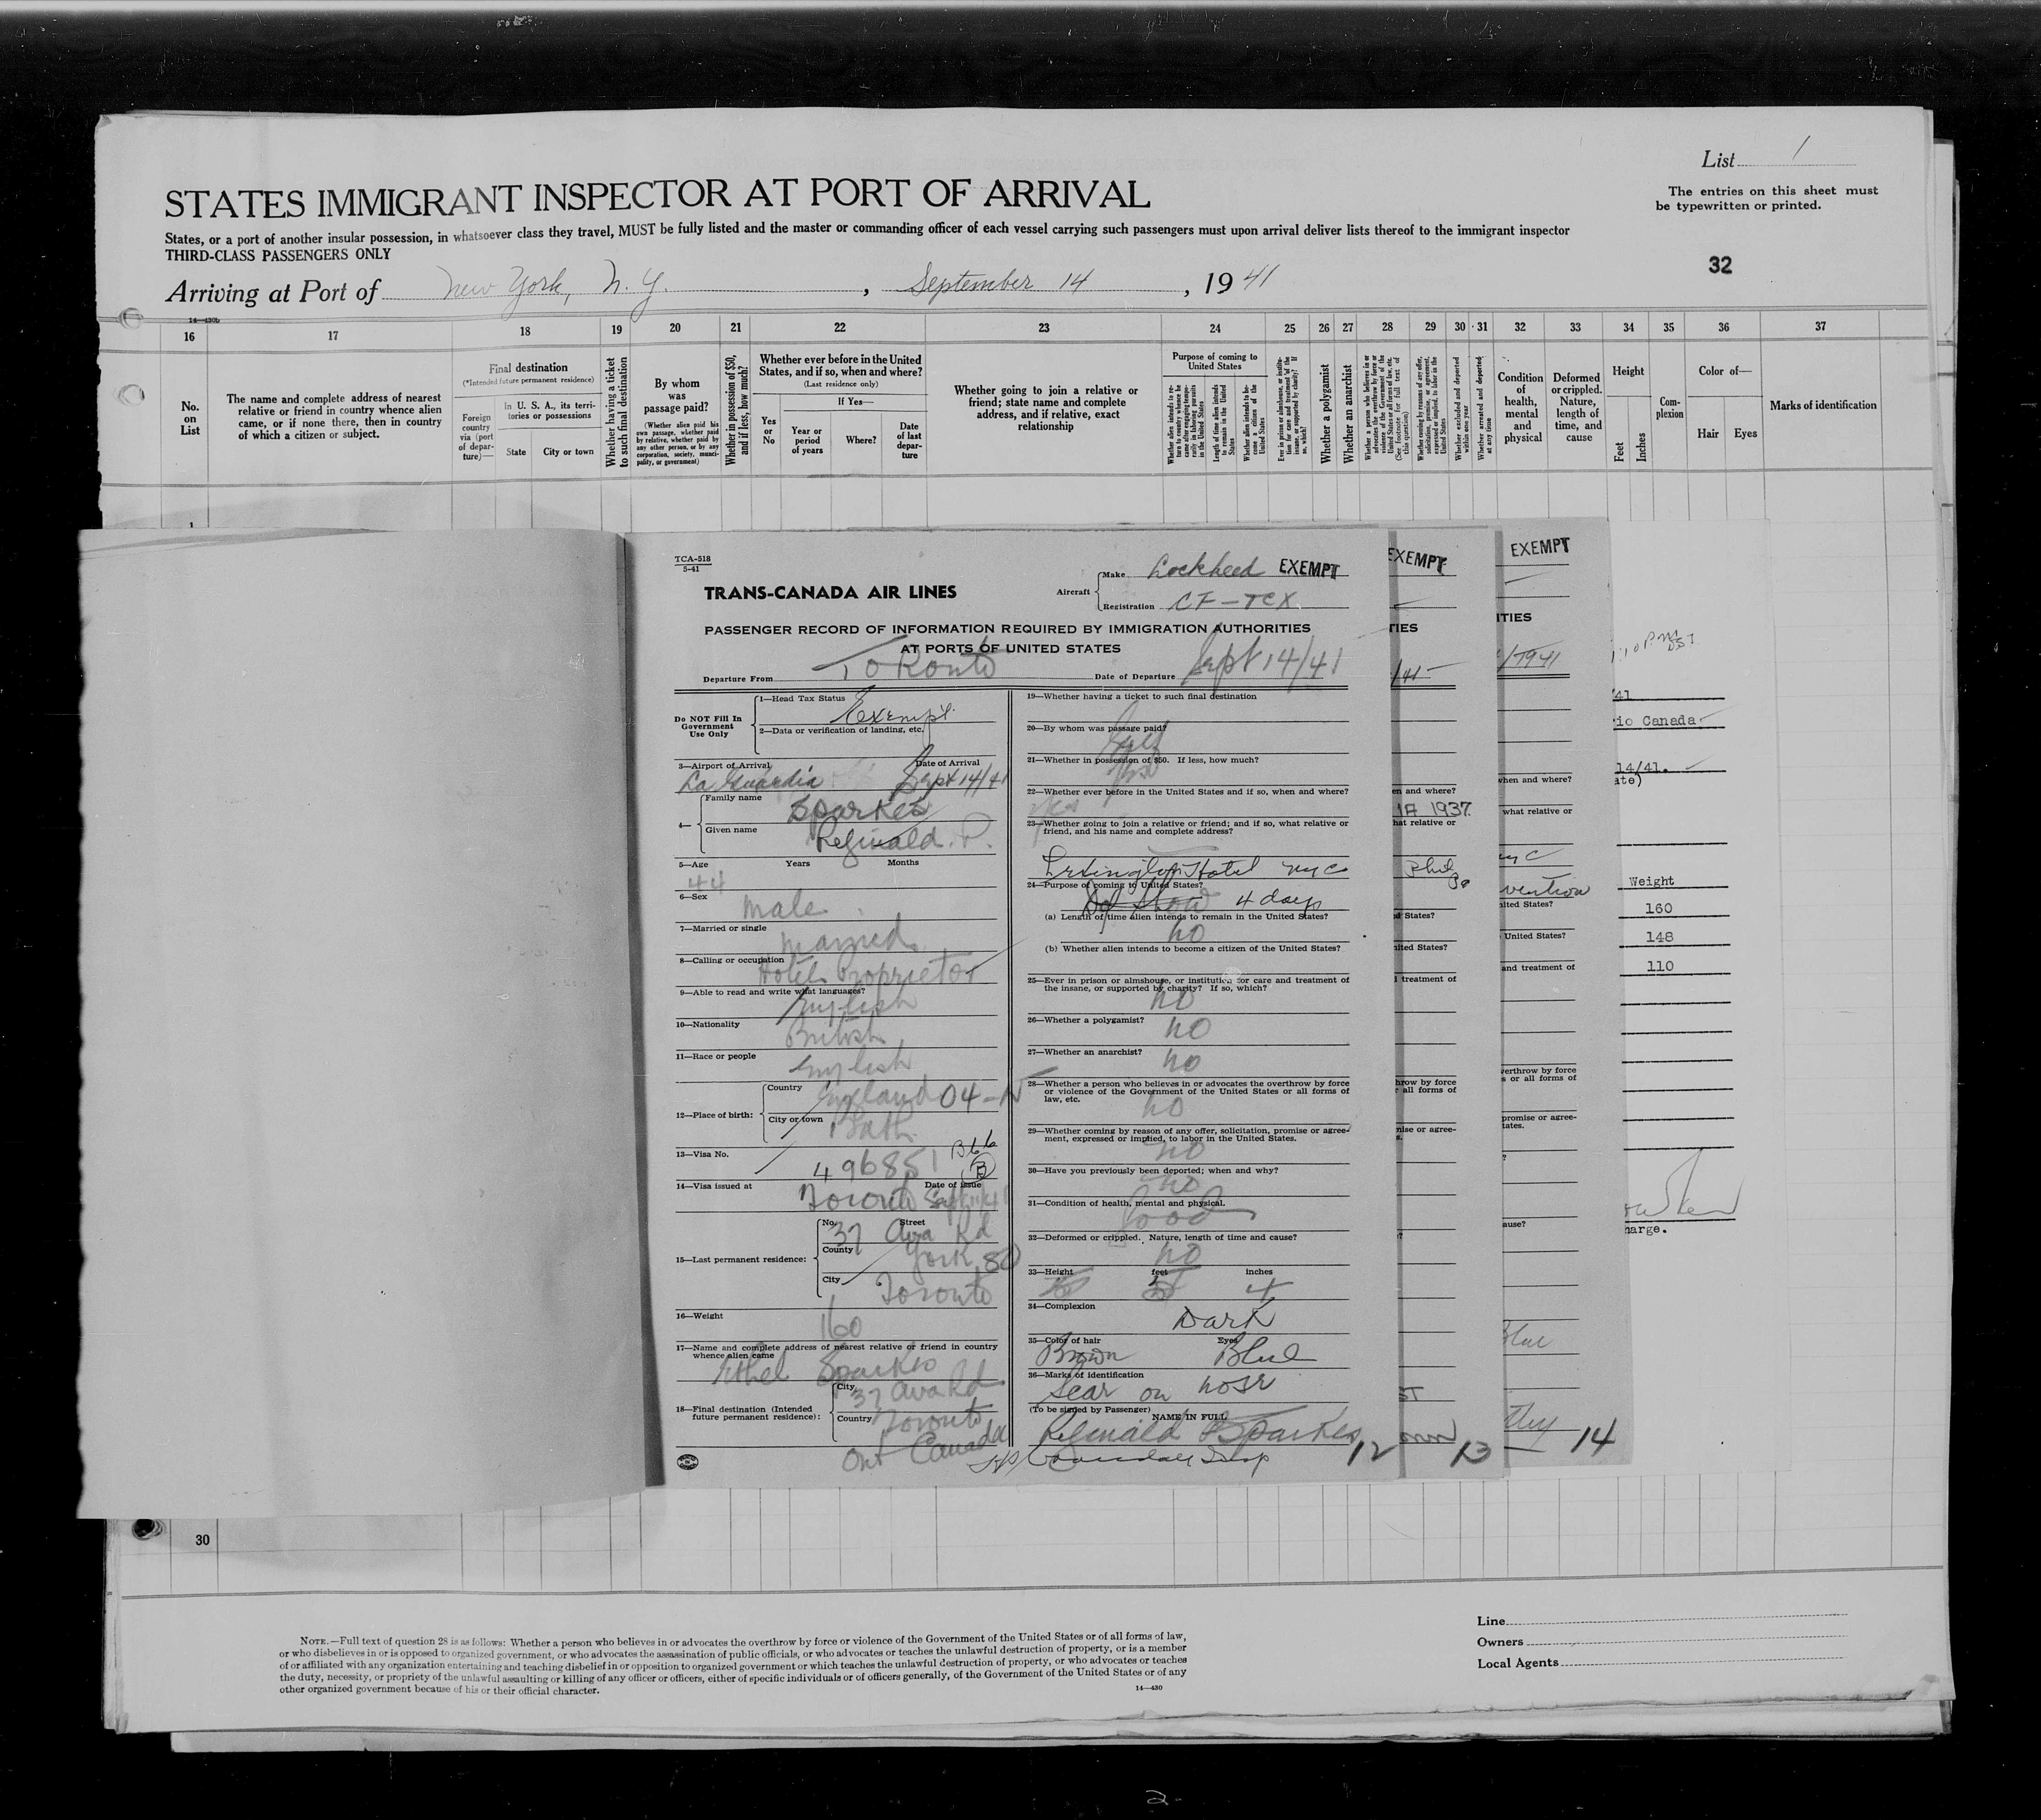 List 1
The entries on this sheet must
be typewritten or printed.
STATES IMMIGRANT INSPECTOR AT PORT OF ARRIVAL
States, or a port of another insular possession, in whatsoever class they travel, MUST be fully listed and the master or commanding officer of each vessel carrying such passengers must upon arrival deliver lists thereof to the immigrant inspector
THIRD-CLASS PASSENGERS ONLY
32
Arriving at Port of New York, N. Y. , September 14 , 1941
14—430b
16 17 18 19 20 21 22 23 24 25 26 27 28 29 30 31 32 33 34 35 36 37
No. on List
The name and complete address of nearest
relative or friend in country whence alien
came, or if none there, then in country
of which a citizen or subject.
Final destination
(*Intended future permanent residence)
Foreign country via (port of departure)—
in U. S. A., its territories or possessions
State City or town
Whether having a ticket to such final destination
By whom was passage paid?
(Whether alien paid his own passage, whether paid by relative, whether paid by any other person, or by any corporation, society, municipality, or government)
Whether in possession of $50, and if less, how much?
Whether ever before in the United
States, and if so, when and where?
(Last residence only)
Yes or No
If Yes—
Year or period of years
Where?
Date of last departure
Whether going to join a relative or
friend; state name and complete
address, and if relative, exact
relationship
Purpose of coming to
United States
Whether a polygamist
Whether an anarchist
Condition of health, mental and physical
Deformed or crippled. Nature, length of time, and cause
Height
Feet Inches
Complexion
Color of—
Hair Eyes
Marks of identification
1
TCA-518
5-41
TRANS-CANADA AIR LINES
Aircraft
Make Lockheed EXEMPT
Registration CF-TCX
PASSENGER RECORD OF INFORMATION REQUIRED BY IMMIGRATION AUTHORITIES
AT PORTS OF UNITED STATES
Departure From Toronto Date of Departure Sept 14/41
Do NOT Fill In
Government
Use Only
1—Head Tax Status Exempt
2—Data or verification of landing, etc.
3—Airport of Arrival La Guardia Date of Arrival Sept 14/41
4— Family name Sparkes
Given name Reginald P.
5—Age Years Months
44
6—Sex male
7—Married or single Married
8—Calling or occupation Hotel Proprietor
9—Able to read and write what languages? English
10—Nationality British
11—Race or people English
12—Place of birth: Country England 04-N
City or town Bath
13—Visa No. 496851
14—Visa issued at Toronto Date of issue
15—Last permanent residence: No. 37 Street Ava Rd
County York 80
City Toronto
16—Weight 160
17—Name and complete address of nearest relative or friend in country
whence alien came
Ethel Sparkes
18—Final destination (Intended
future permanent residence):
City 37 Ava Rd
Country Toronto
Ont Canada
19—Whether having a ticket to such final destination
20—By whom was passage paid? Self
21—Whether in possession of $50. If less, how much?
22—Whether ever before in the United States and if so, when and where?
yes
23—Whether going to join a relative or friend; and if so, what relative or
friend, and his name and complete address?
Hotel nyc
24—Purpose of coming to United States?
Show 4 days
(a) Length of time alien intends to remain in the United States?
no
(b) Whether alien intends to become a citizen of the United States?
25—Ever in prison or almshouse, or institution for care and treatment of
the insane, or supported by charity? If so, which?
no
26—Whether a polygamist? no
27—Whether an anarchist? no
28—Whether a person who believes in or advocates the overthrow by force
or violence of the Government of the United States or all forms of
law, etc.
no
29—Whether coming by reason of any offer, solicitation, promise or agree-
ment, expressed or implied, to labor in the United States.
no
30—Have you previously been deported; when and why?
no
31—Condition of health, mental and physical.
Good
32—Deformed or crippled. Nature, length of time and cause?
no
33—Height feet inches
5 4
34—Complexion Dark
35—Color of hair Brown Eyes Blue
36—Marks of identification
Scar on nose
(To be signed by Passenger)
NAME IN FULL
Reginald P Sparkes
12
EXEMPT
TIES
/41
en and where?
1937
hat relative or
Phil
Pa
d States?
ited States?
treatment of
hrow by force
all forms of
nise or agree-
13
EXEMPT
ITIES
/1941
hen and where?
what relative or
nyc
vention
ited States?
United States?
and treatment of
verthrow by force
s or all forms of
promise or agree-
tates.
ause?
Blue
14
/41
io Canada
14/41.
ate)
Weight
160
148
110
harge.
30
NOTE.—Full text of question 28 is as follows: Whether a person who believes in or advocates the overthrow by force or violence of the Government of the United States or of all forms of law,
or who disbelieves in or is opposed to organized government, or who advocates the assassination of public officials, or who advocates or teaches the unlawful destruction of property, or is a member
of or affiliated with any organization entertaining and teaching disbelief in or opposition to organized government or which teaches the unlawful destruction of property, or who advocates or teaches
the duty, necessity, or propriety of the unlawful assaulting or killing of any officer or officers, either of specific individuals or of officers generally, of the Government of the United States or of any
other organized government because of his or their official character.
14—430
Line
Owners
Local Agents
2